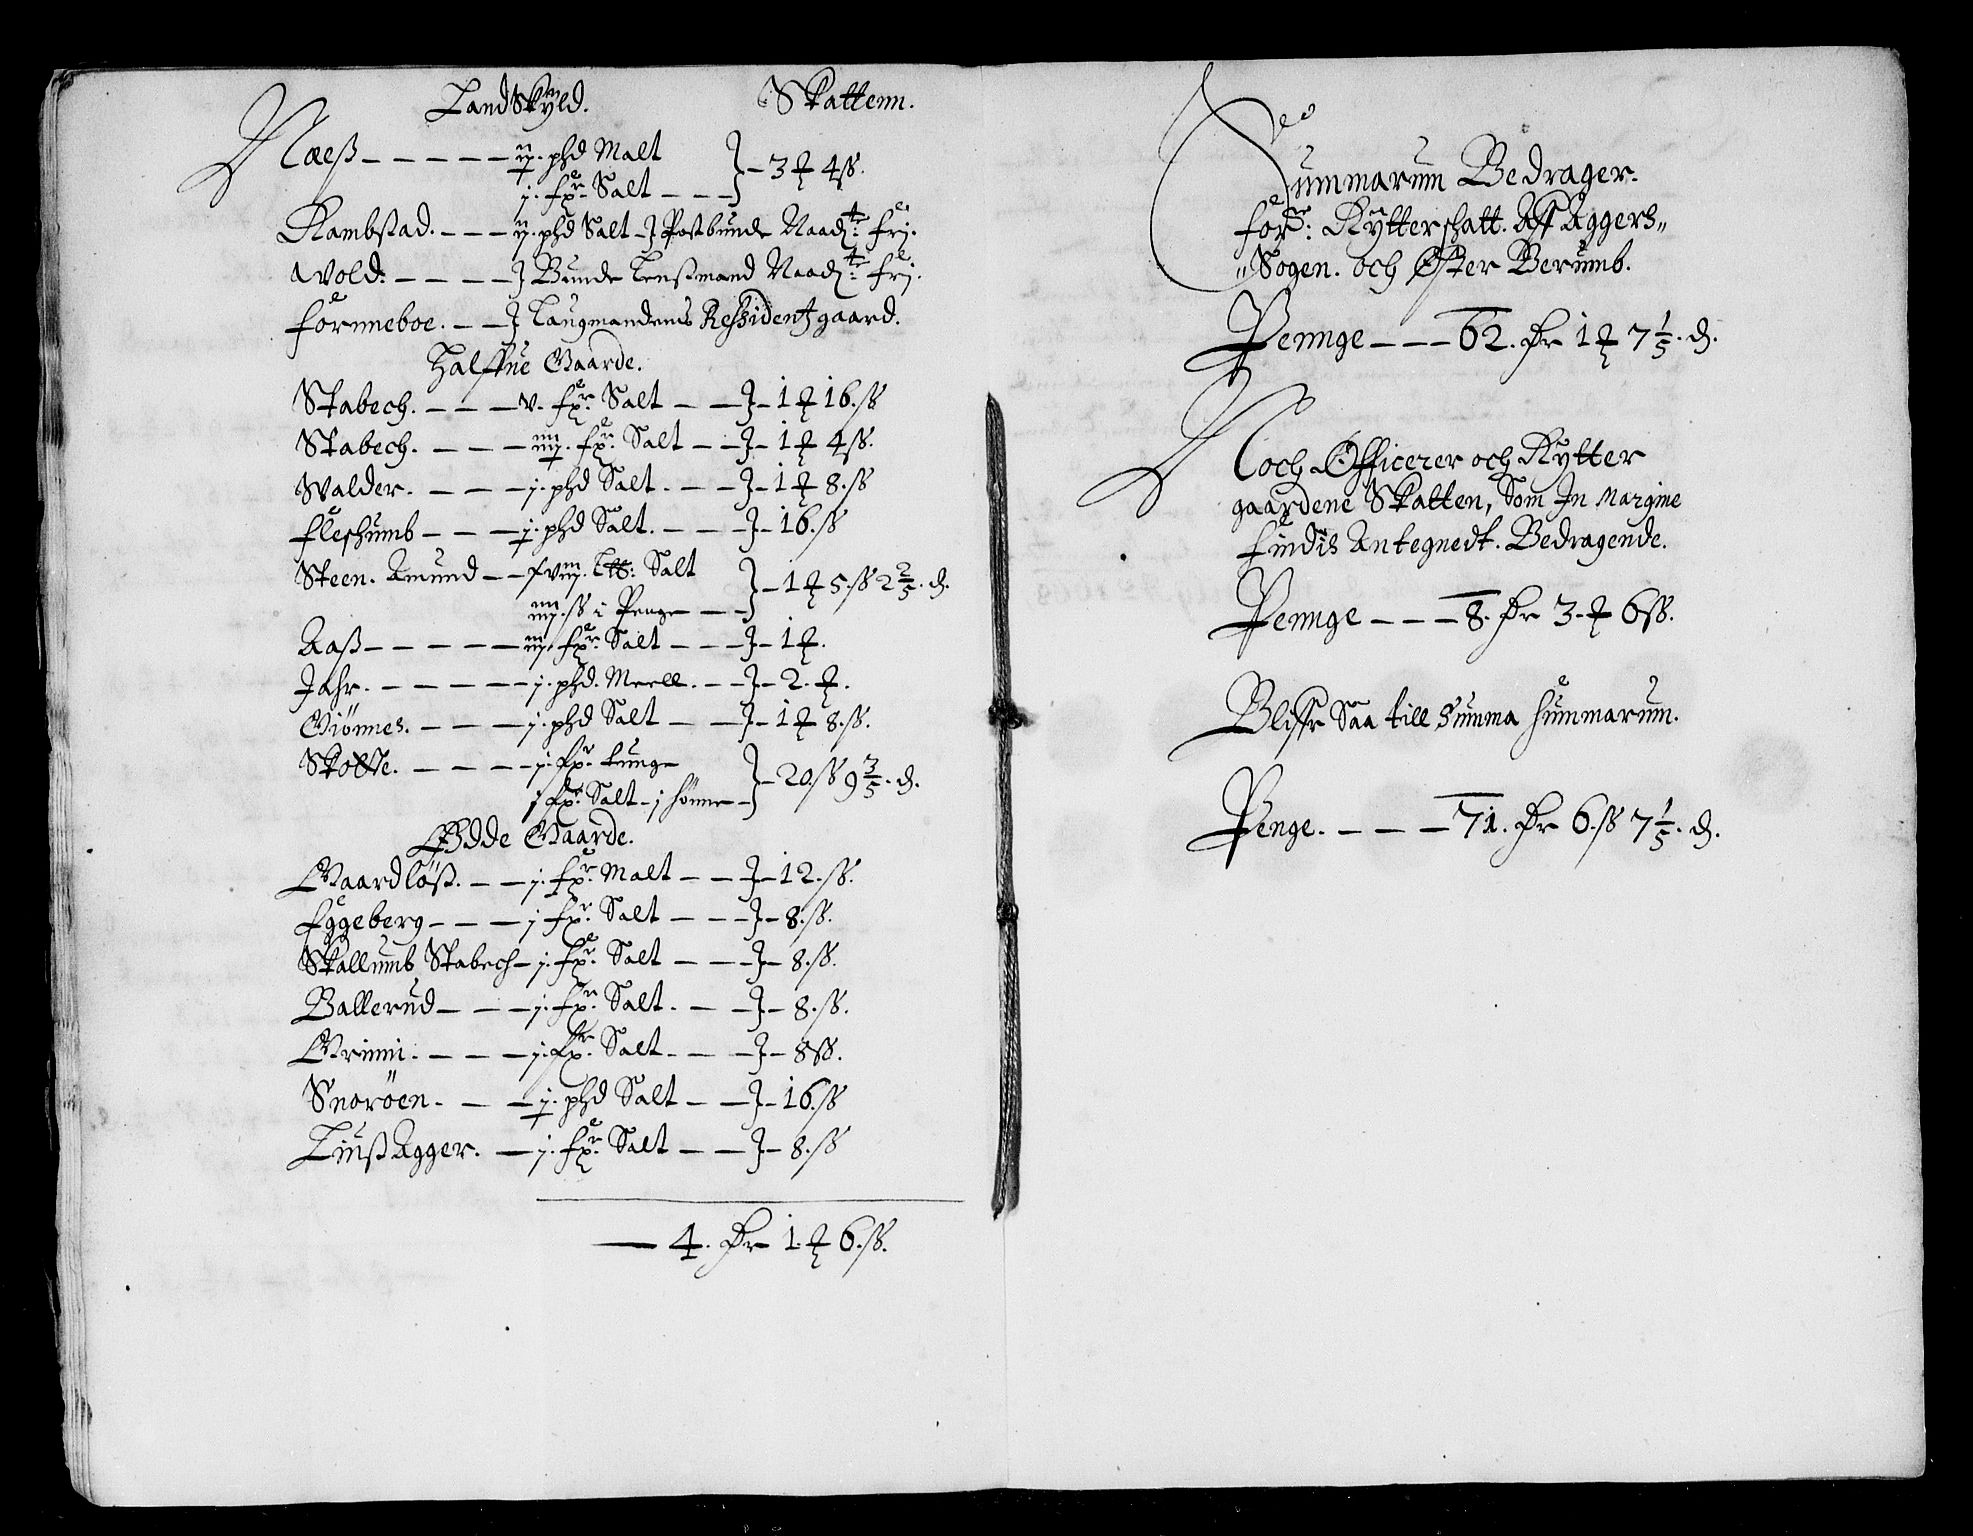 LandSkÿld. Skattenn.
Næeß – – – – – ij. phd Malt
j. fxr. Salt – – – } – 3 ꝶ 4 ß.
Rambstad. – – – ij. phd Salt – J Postbunde Naadt: frj.
Wold. – – – – J Bunde Lenßmand Naadt: frj.
Fornneboe. – – J Laugmandens Reßident gaard.
Halffue Gaarde.
Stabech. – – – v. fxr. Salt – – J – 1 ꝶ 16. ß
Stabech. – – – iiij. fxr. Salt – – J – 1 ꝶ 4 ß.
Walder. – – – j. phd Salt. – – J – 1 ꝶ 8. ß
Fleshumb – – – j. phd Salt. – – J – 16. ß
Steen. Amund – – fviij. L℔: Salt
iiij. ß i Penge – – } – 1 ꝶ 5. ß 2 2/5. d.
Aaß – – – – – iij. fxr. Salt – – J – 1 ꝶ.
Jahr. – – – – – j. phd. Meell. – – J – 2. ꝶ.
Giönnes. – – – – j. phd Salt – – J – 1 ꝶ 8. ß.
Skotte. – – – – j. fxr. tunge
j fxr. Salt – j hönne – } – 20. ß 9 3/5. d.
Ødde Gaarde.
Gaardlöß. – – j. fxr. Malt – – J – 12. ß.
Eggeberg – – – j fxr. Salt – – J – 8. ß.
Skallumb Stabech – j. fxr. Salt – – J – 8. ß.
Ballerud – – – j. fxr. Salt. – – J – 8. ß.
Grinni. – – – j. fxr. Salt – – J – 8 ß.
Snoröen. – – – j. phd Salt – – J – 16. ß
Linß Agger. – j. fxr. Salt – – J – 8. ß
— 4. Dr 1. ꝶ 6. ß.
Summarum Bedrager.
Forß: Rÿtterschatt. Aff Aggers„
„Sogen. och Øster Berumb.
Pennge – – – 62. Dr 1 ꝶ 7 1/5. d.
Noch Officerer och Rytter
gaardene Skatten, Som Jn Margine
findis Antegnedt. Bedragende.
Pennge – – – 8. Dr 3. ꝶ 6 ß.
Bliffr Saa till Summa Summarum.
Penge. – – – 71. Dr 6. ß 7 1/5. d.